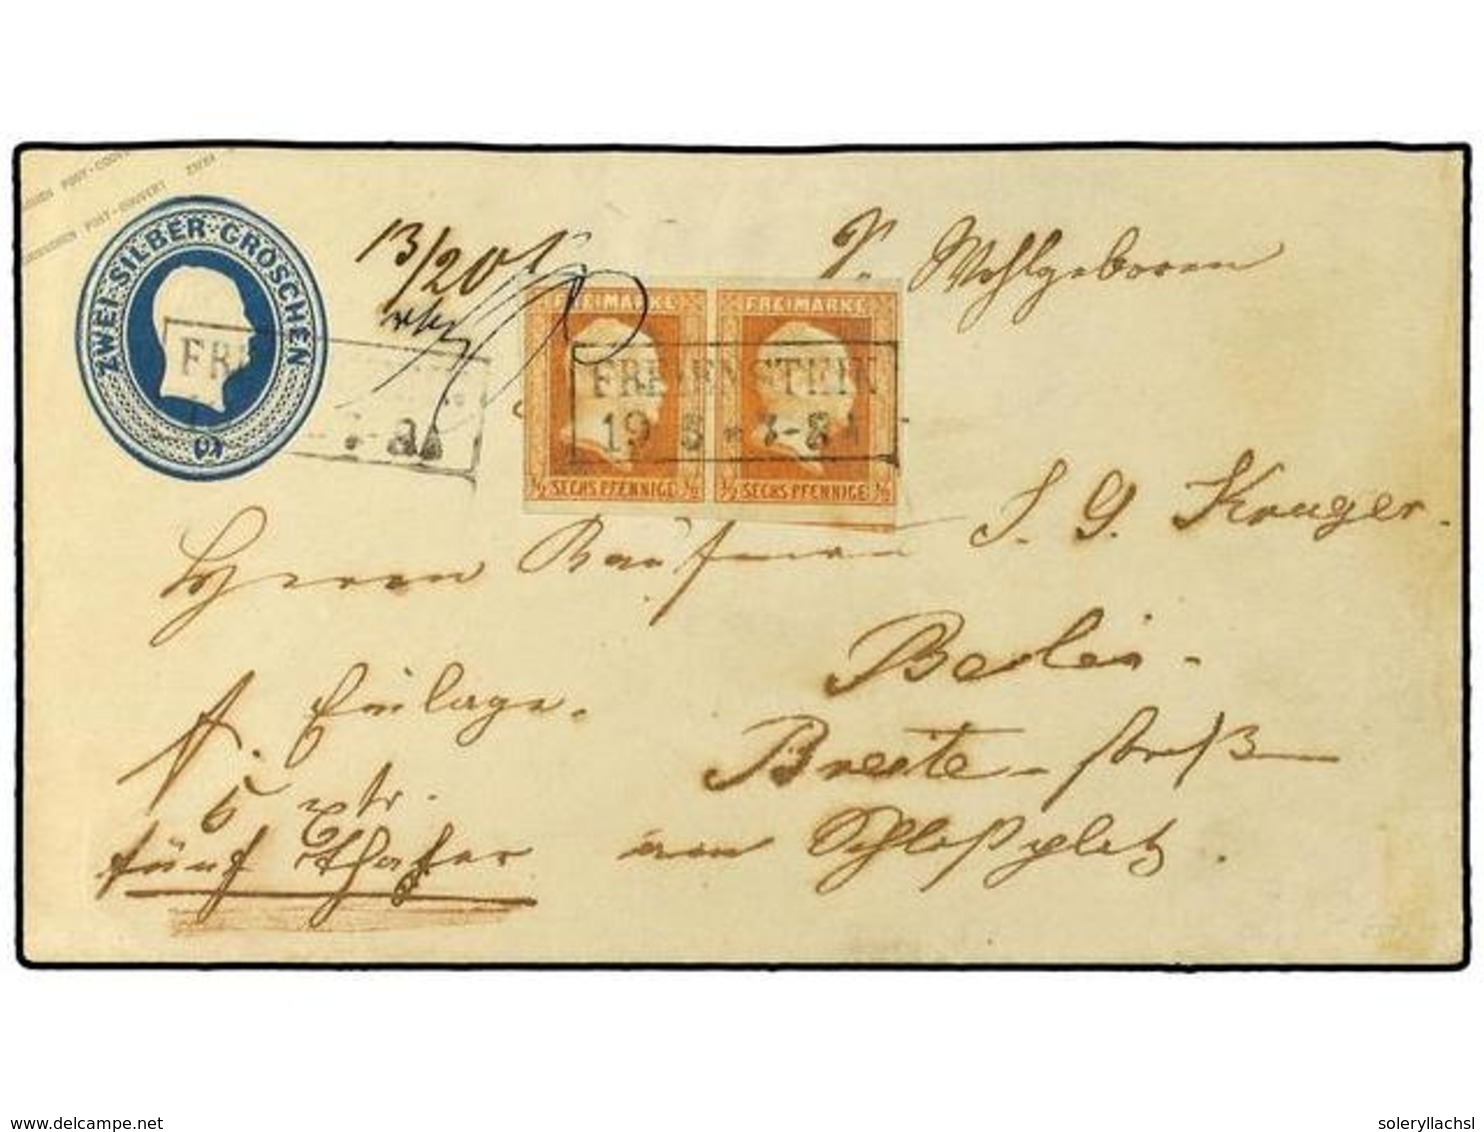 POST-COUVERT
ZWEI SILBER-GROSCHEN
2
13/20
Wohlgeboren
FREIMARKE FREIMARKE
FREIENSTEIN
19 3 * 7-8
½ SECHS PFENNIGE ½ ½ SECHS PFENNIGE ½
Herrn Kaufmann J. G. Kruger.
Berlin.
Breite-straße
am Schloßplatz.
Einlage.
5
fünf Thaler
www.delcampe.net
soleryllachsl